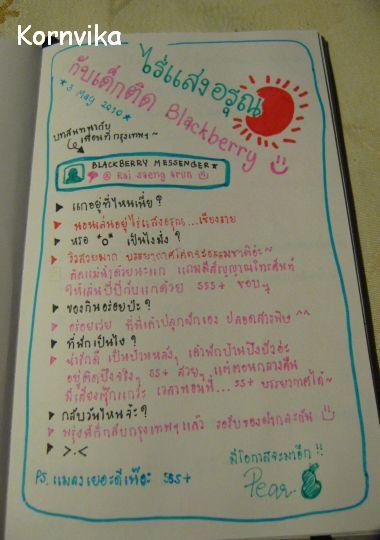 Kornvika
ไร่แสงอรุณ
กับเด็กติด Blackberry
* 3 May 2010 *
บทสนทนากับ
เพื่อนที่กรุงเทพฯ
BLACKBERRY MESSENGER*
@ Rai Saeng Arun
แกอยู่ที่ไหนเนี่ย?
นอนเล่นอยู่ไร่แสงอรุณ...เชียงราย
หรอ *o* เป็นไงมั่ง?
วิวสวยมาก บรรยากาศโคตรธรรมชาติอ่ะ~
ติดแม่น้ำด้วยนะแก แถมมีสัญญาณโทรศัพท์
ให้เล่นบีบีกับแกด้วย 555+ ชอบๆ
ของกินอร่อยป่ะ?
อร่อยเว่ย ที่นี่เค้าปลูกผักเอง ปลอดสารพิษ ^^
ที่พักเป็นไง?
น่ารักดี เป็นบ้านหลังๆ เค้าพักบ้านปิงปัวอ่ะ
อยู่ติดบึงจริงๆ 55+ สวยๆ แต่ตอนกลางคืน
มีเสียงตุ๊กแกวะ เวลานอนที่...55+ บรรยากาศได้~
กลับวันไหนจ้ะ?
พรุ่งนี้ก็กลับกรุงเทพฯแล้ว รอรับของฝากละกัน
>.<
มีโอกาสจะมาอีก!!
Pear.
PS. แมลงเยอะดีเหอะ 555+